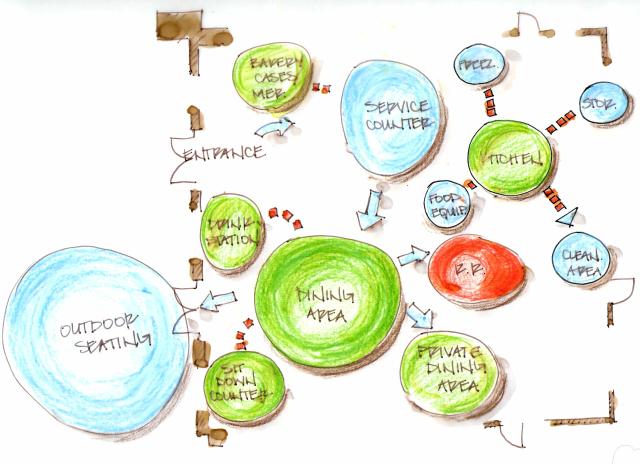 BAKERY
CASES/
MER.
SERVICE
COUNTER
FREEZ.
STOR.
KITCHEN
ENTRANCE
FOOD
EQUIP.
DRINK
STATION
CLEAN.
AREA
R.R.
DINING
AREA
OUTDOOR
SEATING
PRIVATE
DINING
AREA
SIT
DOWN
COUNTER